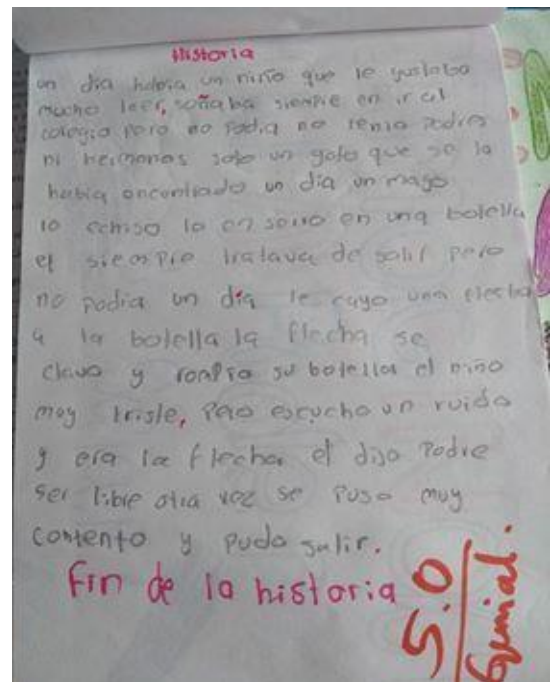 Historia
un dia habia un niño que le gustaba
mucho leer, soñaba siempre en ir al
colegio pero no podia no tenia padres
ni hermanos solo un gato que se lo
habia encontrado un dia un mago
lo echiso lo en un en una botella
el siempre tratava de salir pero
no podia un dia le cayo una
a la botella la flecha se
clavo y rompio su botella el niño
moy triste, pero escucho un ruido
y era la flecha el dijo Podre
ser libre otra vez se puso moy
contento y pudo salir.
Fin de la historia
5.0
Genial.